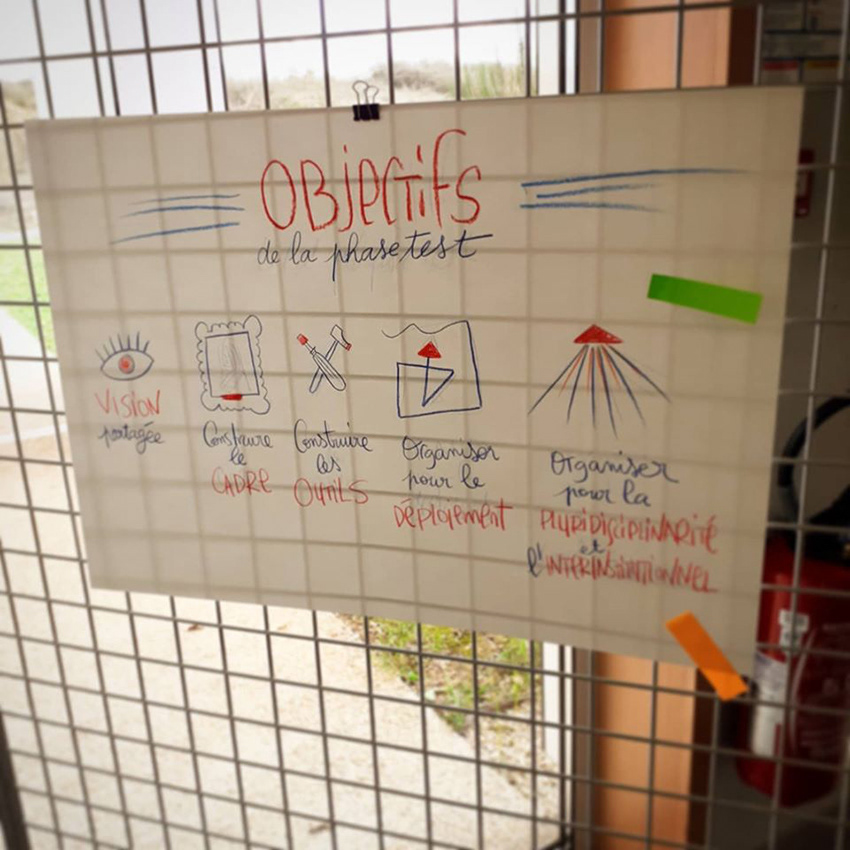 OBJECTIFS
de la phase test
VISION
partagée
Construire
le
CADRE
Construire
les
OUTILS
Organiser
pour le
DÉPLOIEMENT
Organiser
pour la
PLURIDISCIPLINARITÉ
et
l'INTERINSTITUTIONNEL